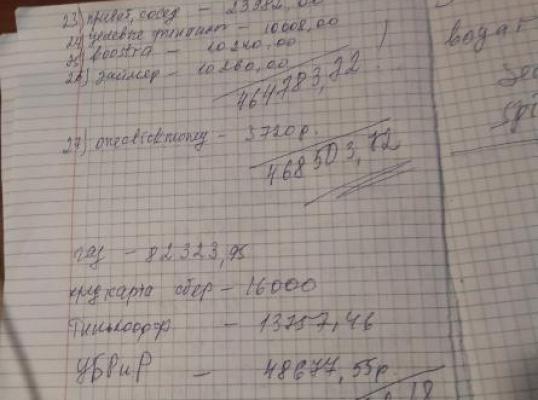 23) привет, сосед – 23982,00
24) целевые финансы – 10008,00
25) boostra – 10240,00
26) займер – 10260,00
464783,72
27) oneclickmoney – 3720р.
468503,72
газ – 82323,95
кред карта сбер – 16000
Тинькофф – 13757,46
УБРиР – 48677,55р.